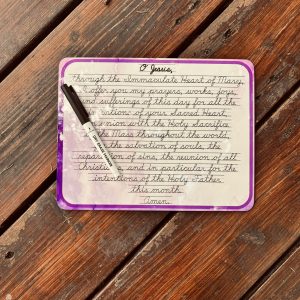 O Jesus,
Through the Immaculate Heart of Mary,
I offer you my prayers, works, joys,
and sufferings of this day for all the
intentions of your Sacred Heart,
union with the Holy Sacrifice
the Mass throughout the world,
the salvation of souls, the
reparation of sins, the reunion of all
Christians, and in particular for the
intentions of the Holy Father
this month.
Amen.